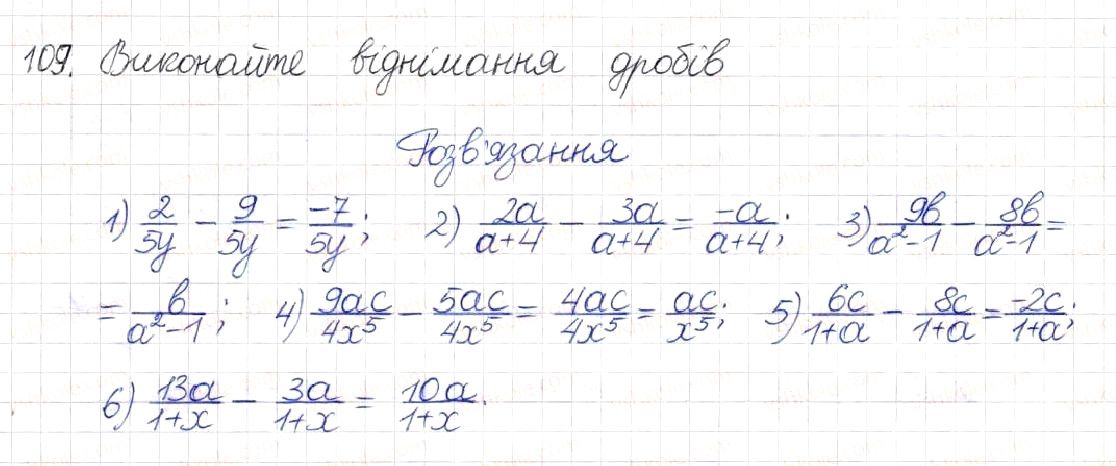 109. Виконайте віднімання дробів
Розв'язання
1) 2/5y - 9/5y = -7/5y; 2) 2a/a+4 - 3a/a+4 = -a/a+4; 3) 9b/a²-1 - 8b/a²-1 =
= b/a²-1; 4) 9ac/4x⁵ - 5ac/4x⁵ = 4ac/4x⁵ = ac/x⁵; 5) 6c/1+a - 8c/1+a = -2c/1+a;
6) 13a/1+x - 3a/1+x = 10a/1+x.